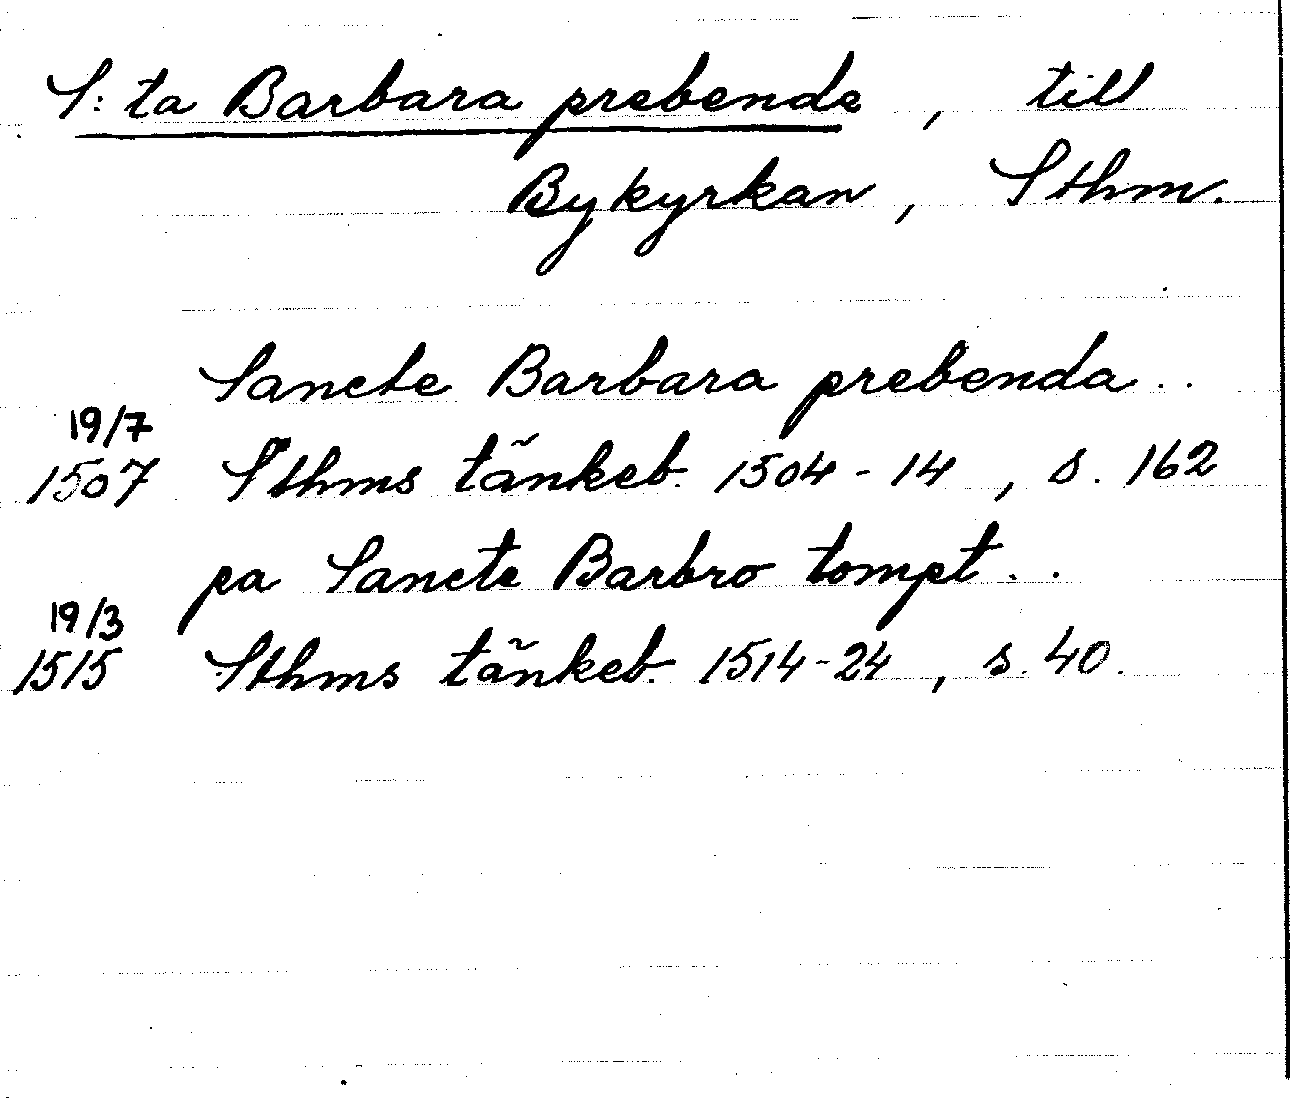 S:ta Barbara prebende, till
Bykyrkan, Sthm.
Sancte Barbara prebenda..
19/7
1507 Sthms tänkeb. 1504-14, s. 162
pa Sancte Barbro tompt..
19/3
1515 Sthms tänkeb. 1514-24, s. 40.